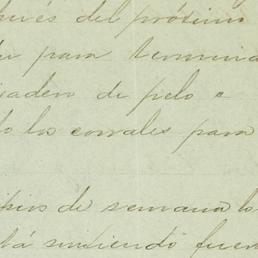 través del próximo
para termina
de pelo o
los corrales para
pios de semana lo
tá sintiendo fuer